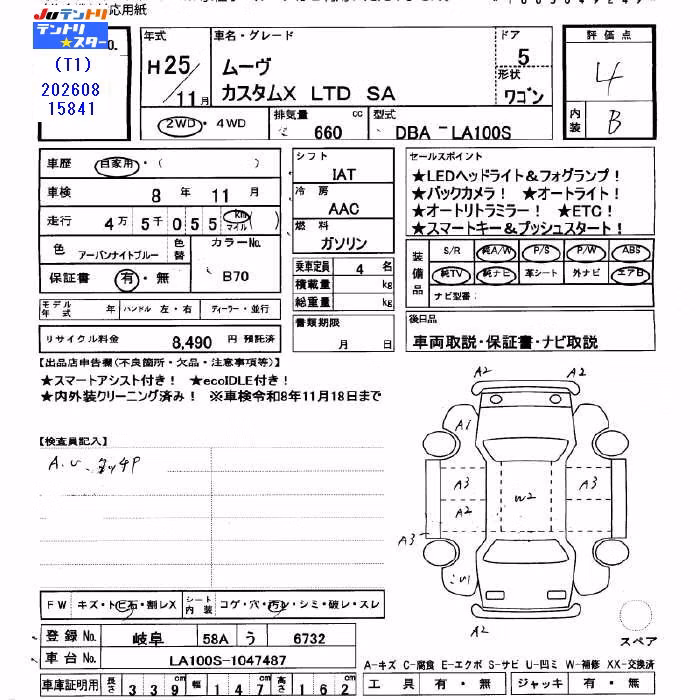 応用紙
JUテントリ
テントリ★スター
(T1)
202608
15841
No.
年式
H25/11月
車名・グレード
ムーヴ
カスタムX LTD SA
ドア
5
形状
ワゴン
評価点
4
内装
B
2WD・4WD
排気量
660 cc
型式
DBA - LA100S
車歴 自家用・( )
車検 8年 11月
走行 4万5千055 km マイル ( )
色 アーバンナイトブルー
色替
カラーNo.
B70
保証書 有・無
シフト
IAT
冷房
AAC
燃料
ガソリン
乗車定員 4名
積載量 kg
総重量 kg
書類期限
月 日
セールスポイント
★LEDヘッドライト&フォグランプ!
★バックカメラ! ★オートライト!
★オートリトラミラー! ★ETC!
★スマートキー&プッシュスタート!
装備品
S/R 純A/W P/S P/W ABS
純TV 純ナビ 革シート 外ナビ エアB
ナビ型番:
モデル年式 年 ハンドル 左・右 ディーラー・並行
リサイクル料金 8,490 円 預託済
後日品
車両取説・保証書・ナビ取説
【出品店申告欄(不良箇所・欠品・注意事項等)】
★スマートアシスト付き! ★ecoIDLE付き!
★内外装クリーニング済み! ※車検令和8年11月18日まで
【検査員記入】
A.U.タッチP
A2
A2
A1
A3
A2
W2
A3
A3
A2
FW キズ・トビ石・割レX
シート内装 コゲ・穴・汚レ・シミ・破レ・スレ
登録No. 岐阜 58A う 6732
車台No. LA100S-1047487
車庫証明用 長さ 339cm 幅 147cm 高さ 162cm
スペア
A-キズ C-腐食 E-エクボ S-サビ U-凹ミ W-補修 XX-交換済
工具 有・無 ジャッキ 有・無